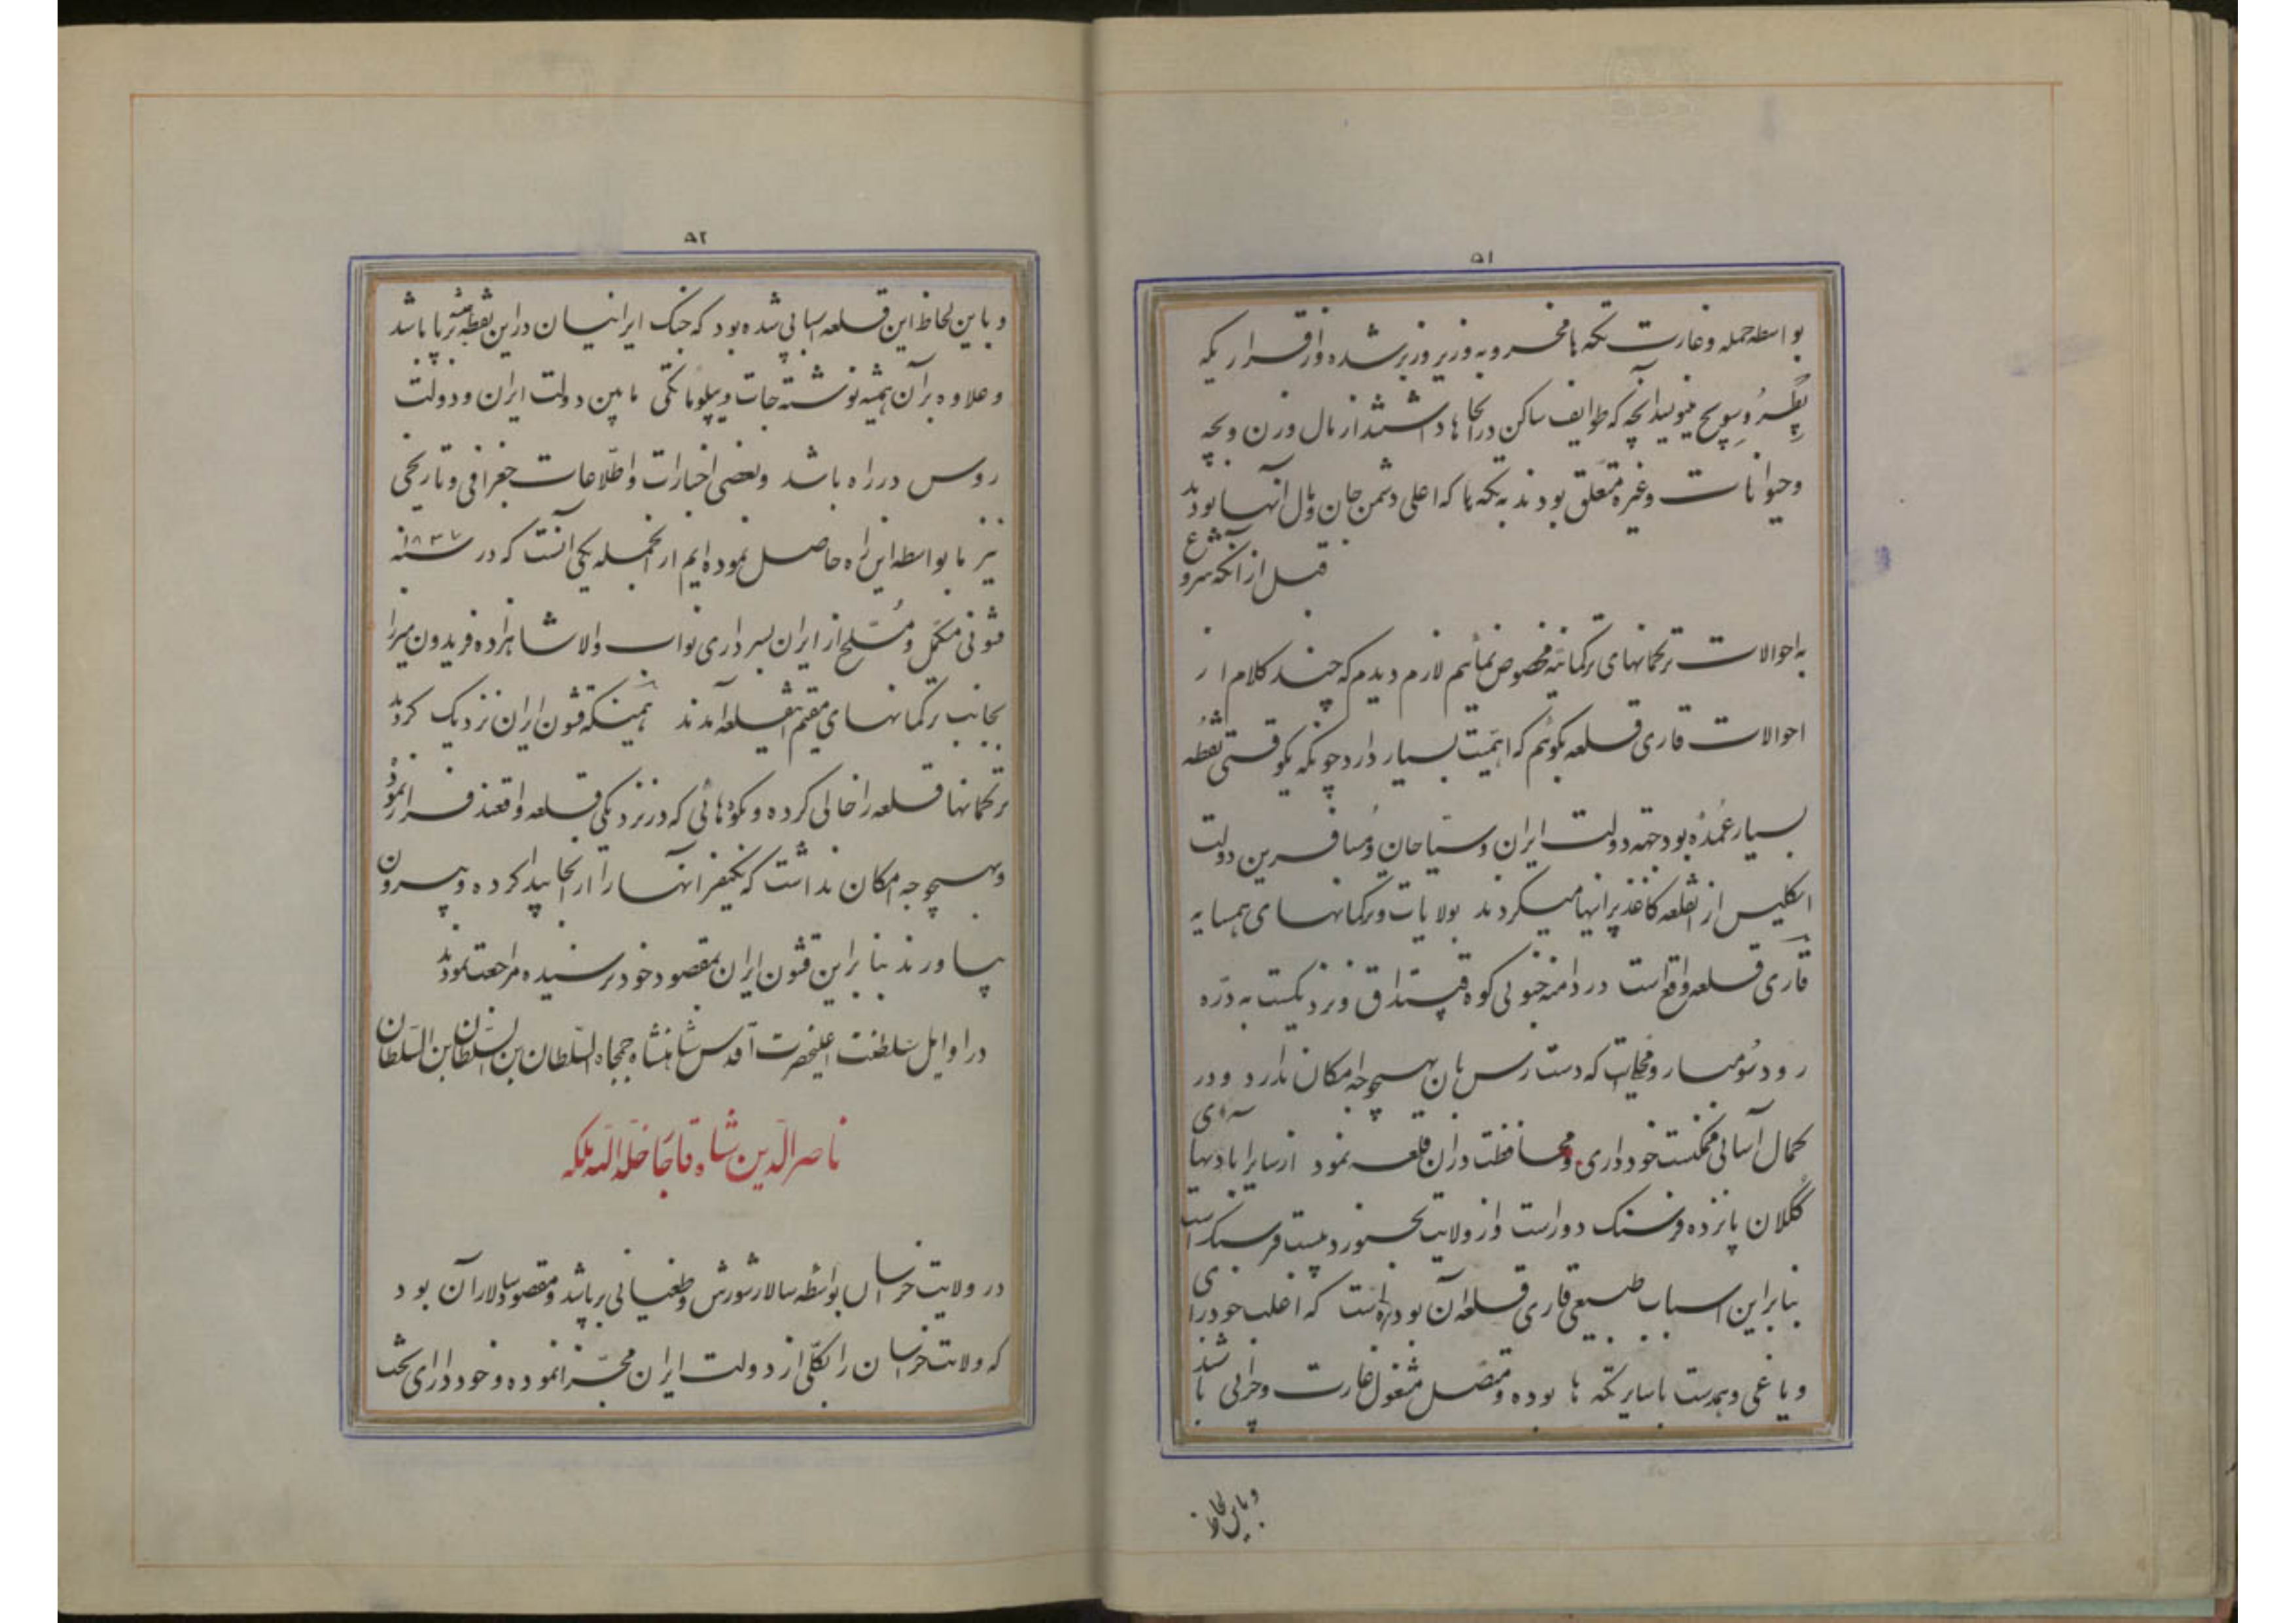 ۵۱
بواسطه حمله و غارت تکه ها مخروبه و زیر و زبر شده و از قراریکه
پطرُوسِویچ مینویسد آنچه که طوایف ساکن در آنجا ها داشتند از مال و زن و بچه
و حیوانات و غیره متعلق بودند به تکه ها که اعلی دشمن جان و مال آنها بودند
قبل از آنکه شروع
به احوالات ترکمانهای ترکمانیه مخصوص نمائیم لازم دیدم که چند کلام از
احوالات قاری قلعه بگوئیم که اهمیت بسیار دارد چونکه یکوقتی نقطه
بسیار عمده بود جهة دولت ایران و سیاحان و مسافرین دولت
انکلیس از انقلعه کاغذ پرانیها میکردند بولایات و ترکمانهای همسایه
قاری قلعه واقع است در دامنه جنوبی کوه و نزدیکست به دره
رود سومبار و محلیست که دست رس بان بهیچوجه امکان ندارد و در
کمال آسانی ممکنست خودداری و محافظت در آن قلعه نمود از سایر ابادیهای
گکلان پانزده فرسنک دور است و از ولایت بجنورد بیست فرسنک است
بنابر این اسباب طبیعی قاری قلعه آن بوده است که اغلب خودرای
و یاغی و همدست با سایر تکه ها بوده و متصل مشغول غارت و خرابی باشند
و باین لحاظ
۵۲
و باین لحاظ این قلعه اسبابی شده بود که جنک ایرانیان در این نقطه همیشه برپا باشد
و علاوه بر آن همیشه نوشته جات دیپلوماتکی مابین دولت ایران و دولت
روس در راه باشد و بعضی اخبارات و اطلاعات جغرافی و تاریخی
نیز ما بواسطه این راه حاصل نموده ایم از انجمله یکی آنست که در سنه ۱۸۳۷
قشونی مکمل و مسلح از ایران بسرداری نواب والا شاهزاده فریدون میرزا
بجانب ترکمانهای مقیم اینقلعه آمدند همینکه قشون ایران نزدیک کردید
ترکمانها قلعه را خالی کرده و بکوه هائی که در نزدیکی قلعه واقعند فرار نمودند
و بهیچوجه امکان نداشت که یکنفر انها را از آنجا پیدا کرده و بیرون
بیاورند بنابراین قشون ایران بمقصود خود نرسیده مراجعت نمودند
در اوایل سلطنت اعلیحضرت اقدس شاهنشاه جمجاه السلطان بن السلطان بن السلطان
ناصرالدین شاه قاجار خلد الله ملکه
در ولایت خراسان بواسطه سالار شورش و طغیانی برپا شد و مقصود سالار آن بود
که ولایت خراسان را بکلی از دولت ایران مجزا نموده و خود دارای تخت